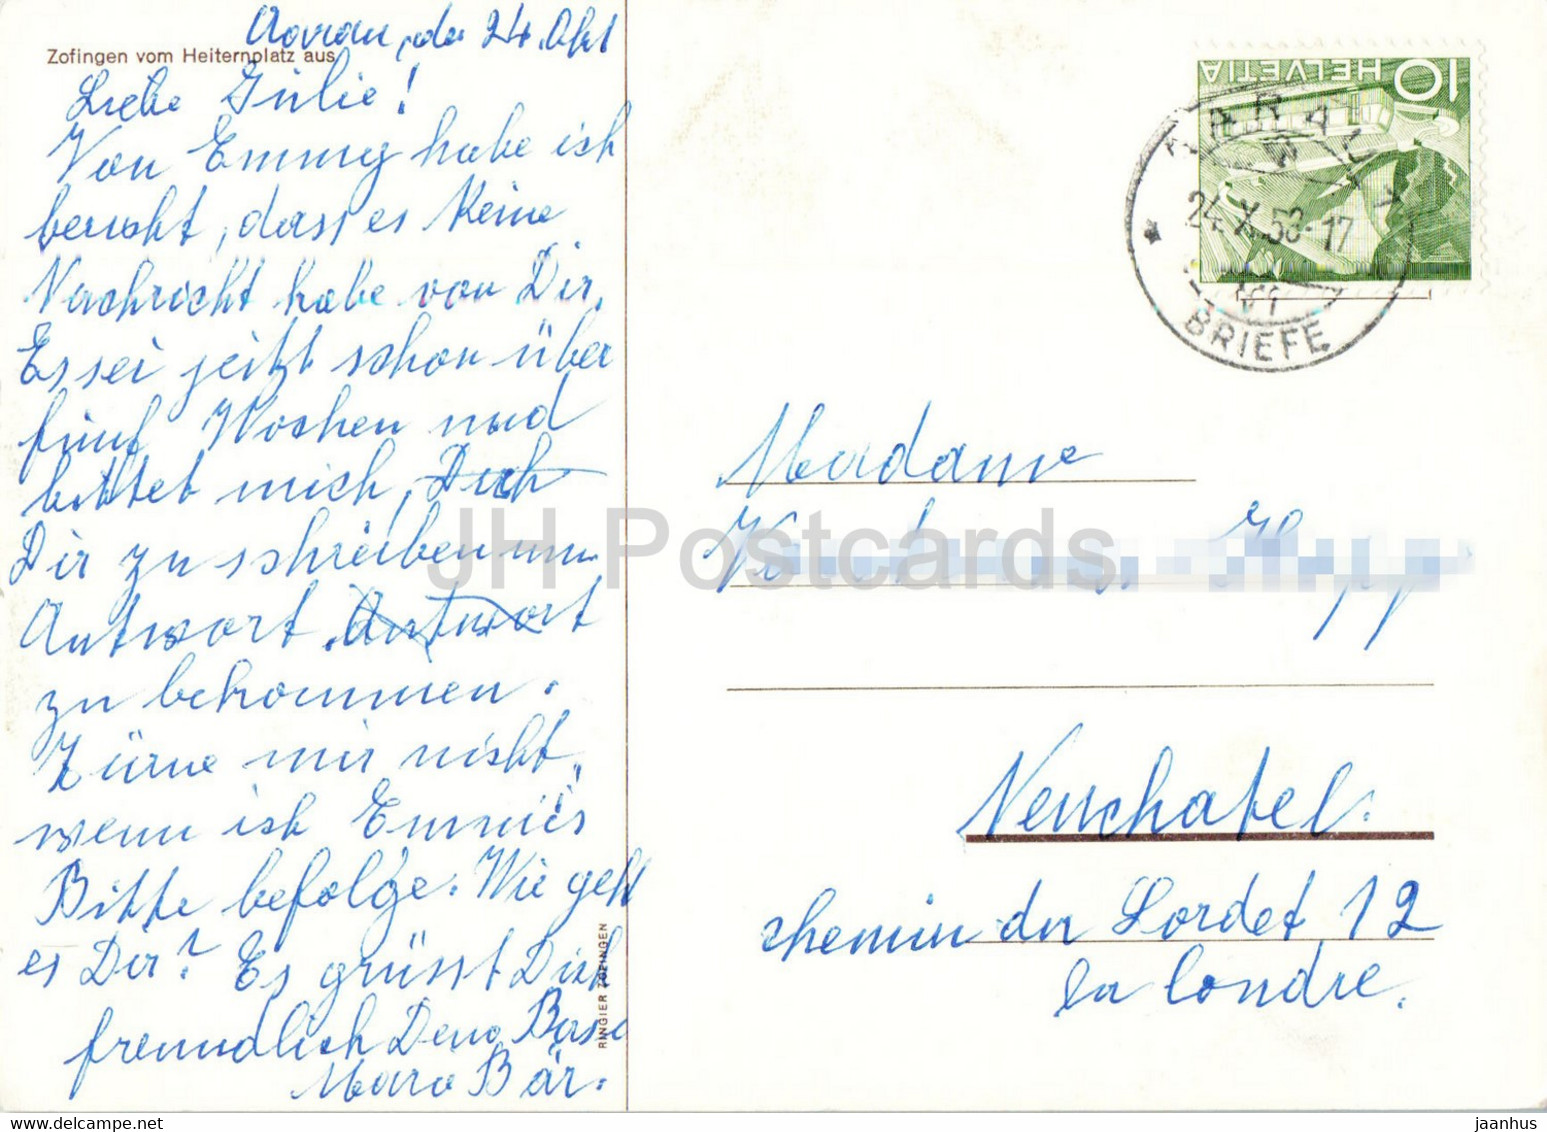 Aarau, den 24. Okt
Zofingen vom Heiternplatz aus
Liebe Julie!
Von Emmy habe ich
bericht, dass es Keine
Nachricht habe von Dir.
Es sei jeitzt schon über
fünf Wochen und
bittet mich, Dich
Dir zu schreiben um
Antwort. Antwort
zu bekommen.
Zürne mir nicht,
wenn ich Emmiés
Bitte befolge. Wie geht
es Dir? Es grüsst Dich
freundlich Deine Base
Bär.
RINGIER ZOFINGEN
HELVETIA 10
AARAU
24.X.53-17
BRIEFE
Madame
Neuchatel.
chemin der Lordet 12
la londre.
JH Postcards
jaanhus